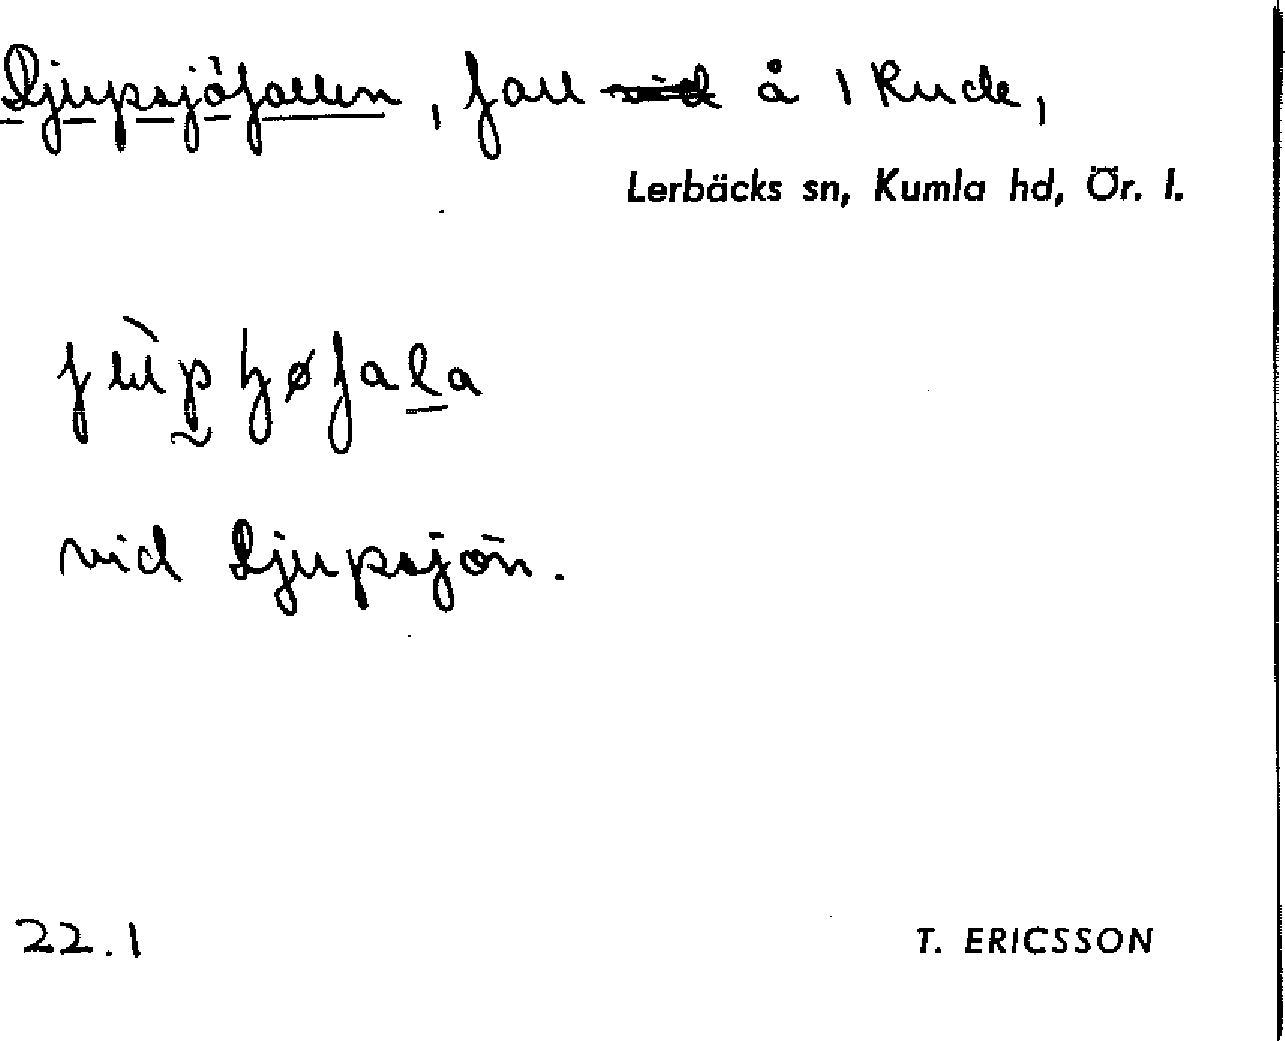 Djupsjöfallen, fall å 1 Rude,
Lerbäcks sn, Kumla hd, Ör. l.
vid Djupsjön.
22.1
T. ERICSSON